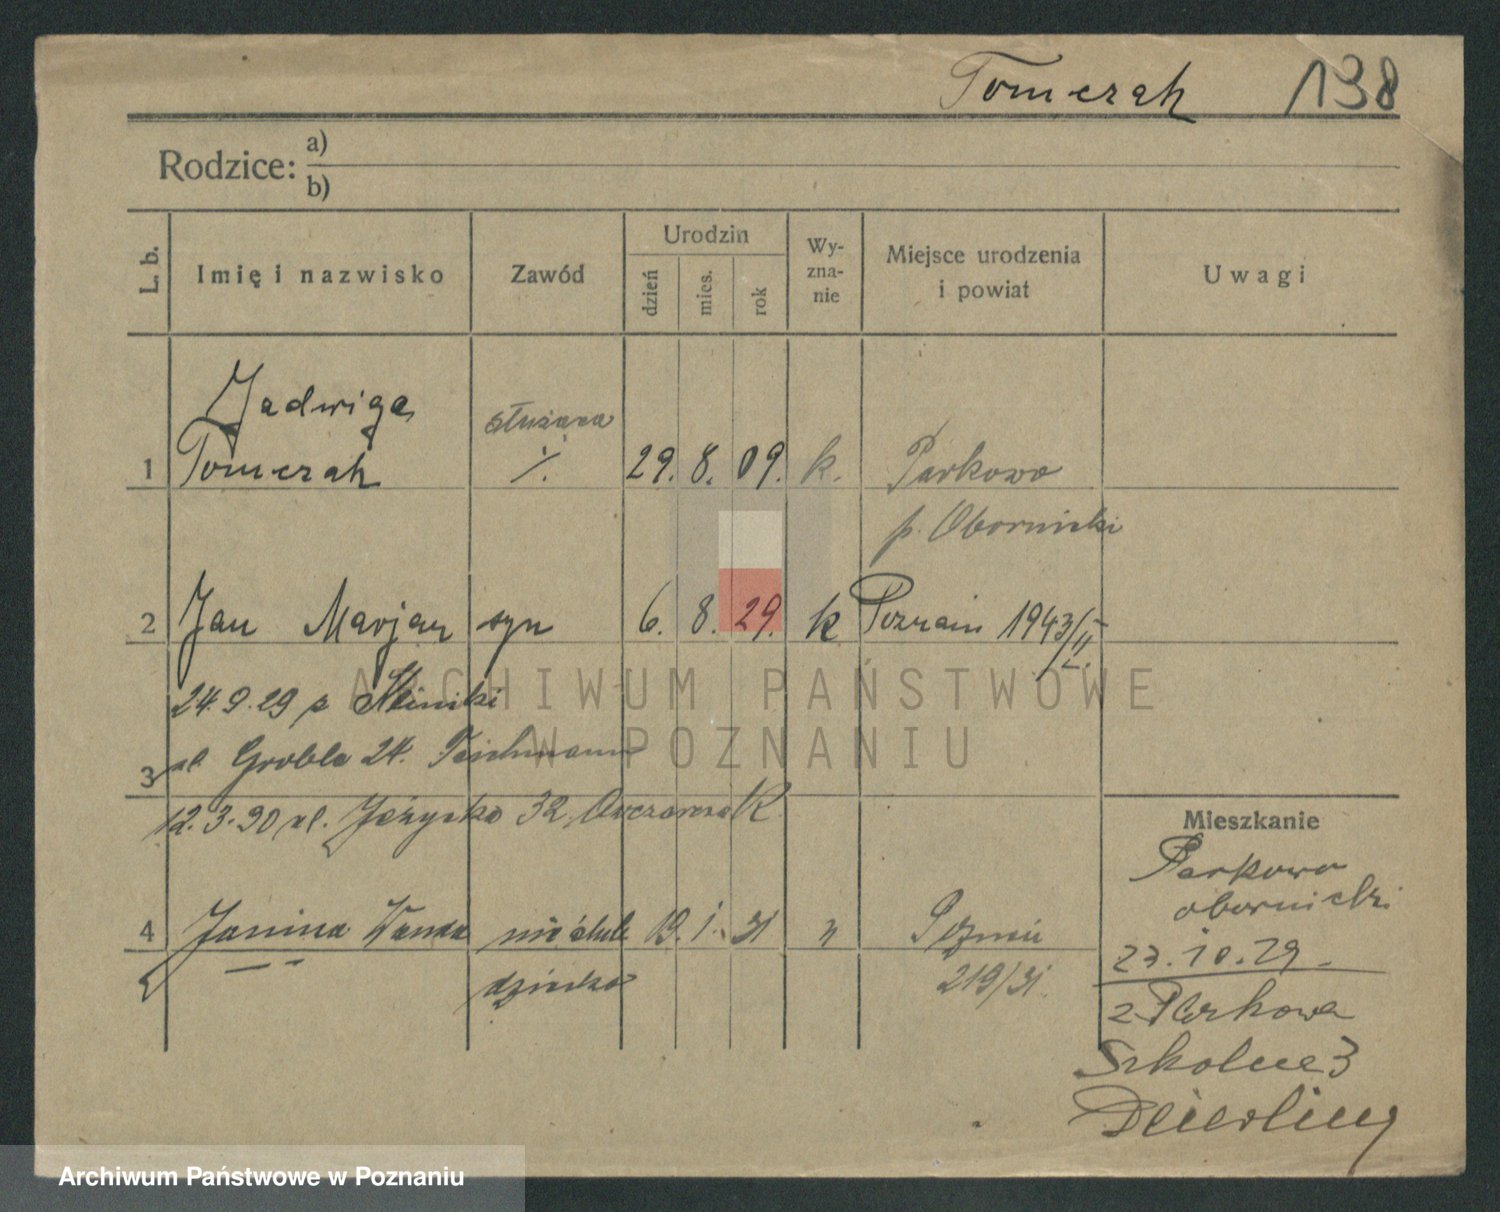 Tomczak 138
Rodzice: a)
b)
L. b. Imię i nazwisko Zawód Urodzin dzień mies. rok Wy-zna-nie Miejsce urodzenia i powiat Uwagi
Jadwiga służąca
1 Tomczak ./. 29. 8. 09. k. Parkowo
p. Obornicki
2 Jan Marjan syn 6. 8. 29. k Poznań 1943/II.
24.9.29 z
3 ul. Grobla 24. Teichmann
12.3.30 ul. Jeżycka 32. Owczarczak
4 Janina Wanda nieślub 19. 1. 31 " Poznań
dziecko 219/31.
Mieszkanie
Parkowo
obornicki
23.10.29.
z Parkowa
Szkolna 3
ARCHIWUM PAŃSTWOWE
W POZNANIU
Archiwum Państwowe w Poznaniu